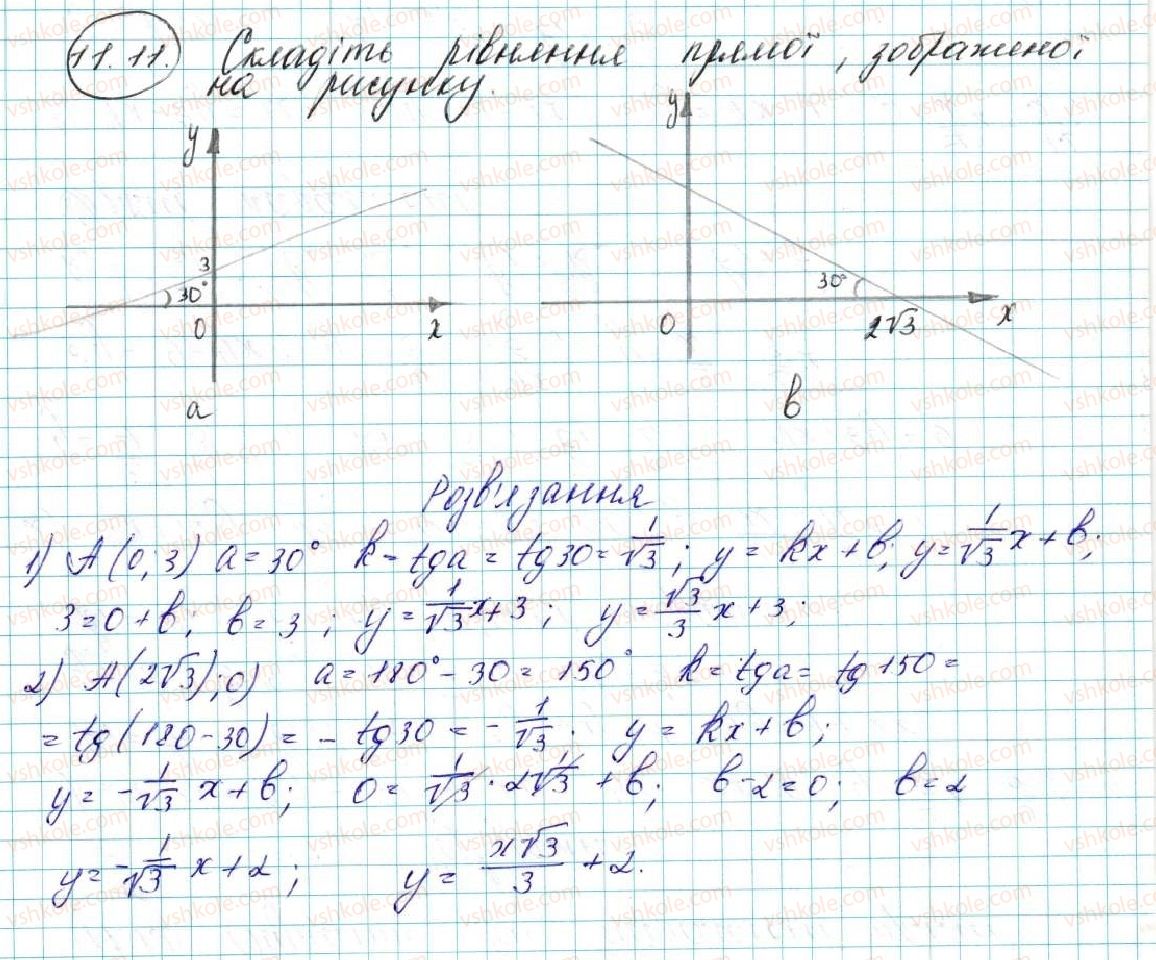 11.11. Складіть рівняння прямої, зображеної
на рисунку.
y
y
3
30°
30°
0
x
0
2√3
x
а
в
Розв'язання
1) A(0; 3) a = 30° k = tga = tg30 = 1/√3; y = kx + b; y = 1/√3 x + b;
3 = 0 + b; b = 3; y = 1/√3 x + 3; y = √3/3 x + 3;
2) A(2√3); 0) a = 180° - 30 = 150° k = tga = tg150 =
= tg(180 - 30) = - tg30 = - 1/√3. y = kx + b;
y = - 1/√3 x + b; 0 = 1/√3 · 2√3 + b; b - 2 = 0; b = 2
y = - 1/√3 x + 2; y = x√3/3 + 2.